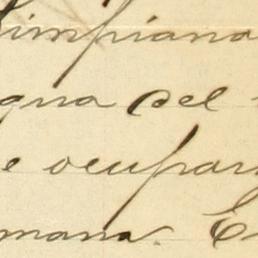 limpiana
gna del
e ocupar
mana. E